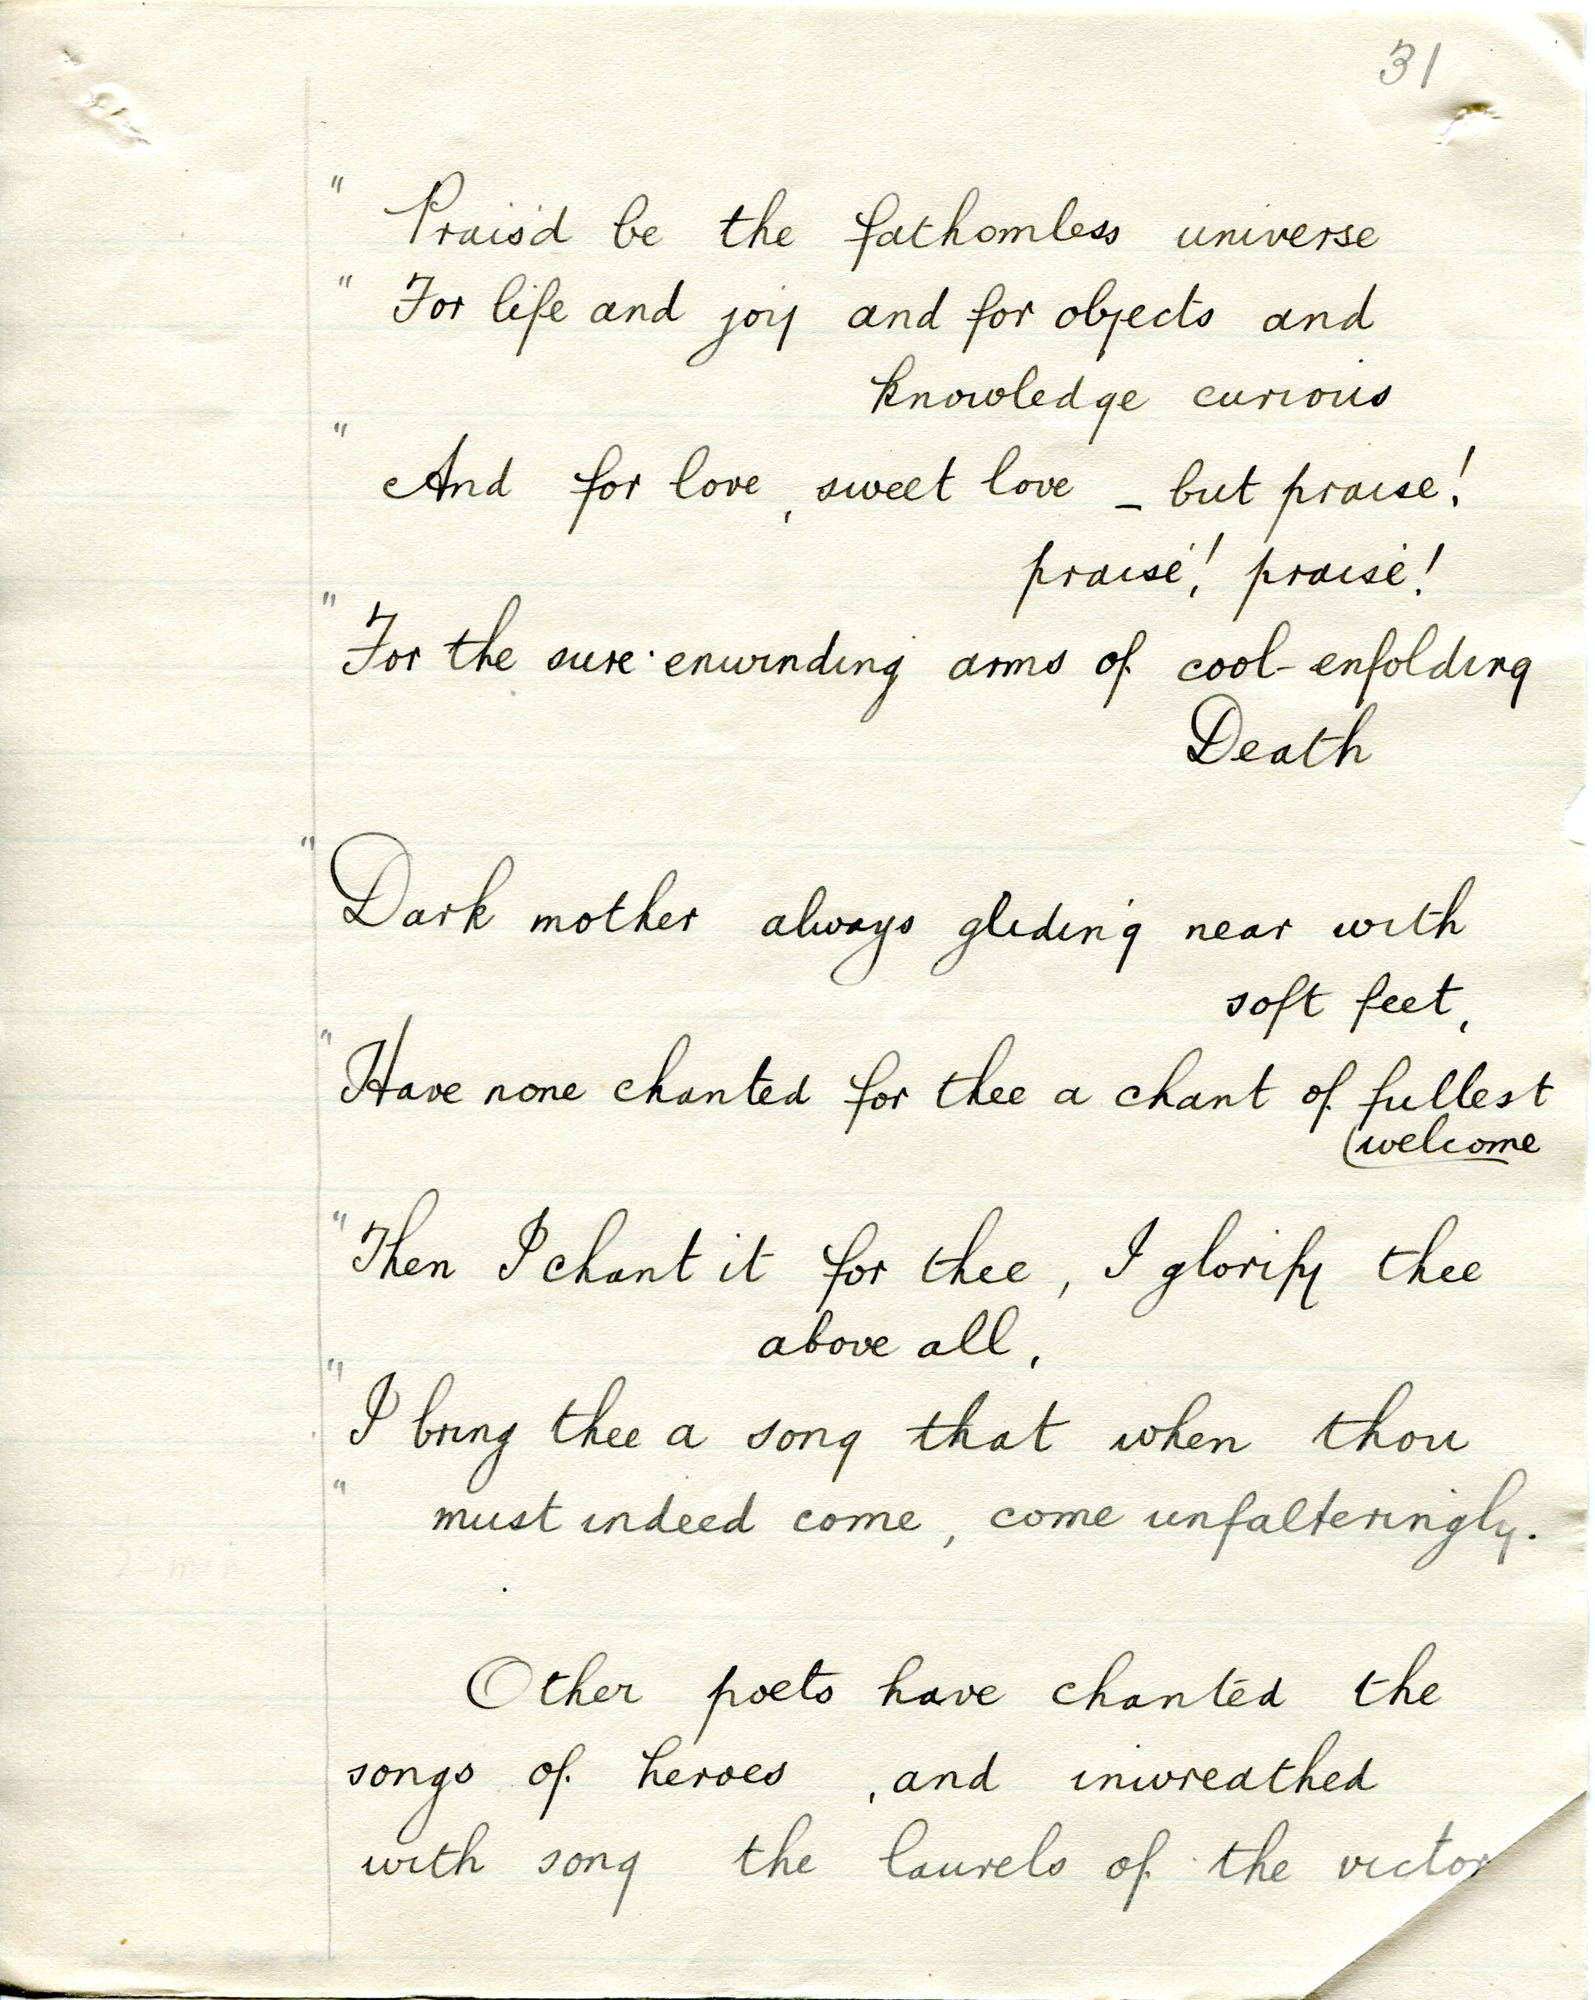 31
" Prais'd be the fathomless universe
" For life and joy and for objects and
knowledge curious
" And for love, sweet love - but praise!
praise! praise!
" For the sure-enwinding arms of cool-enfolding
Death
" Dark mother always gliding near with
soft feet,
" Have none chanted for thee a chant of fullest
(welcome
" Then I chant it for thee, I glorify thee
above all,
" I bring thee a song that when thou
" must indeed come, come unfalteringly.
Other poets have chanted the
songs of heroes, and inwreathed
with song the laurels of the victor